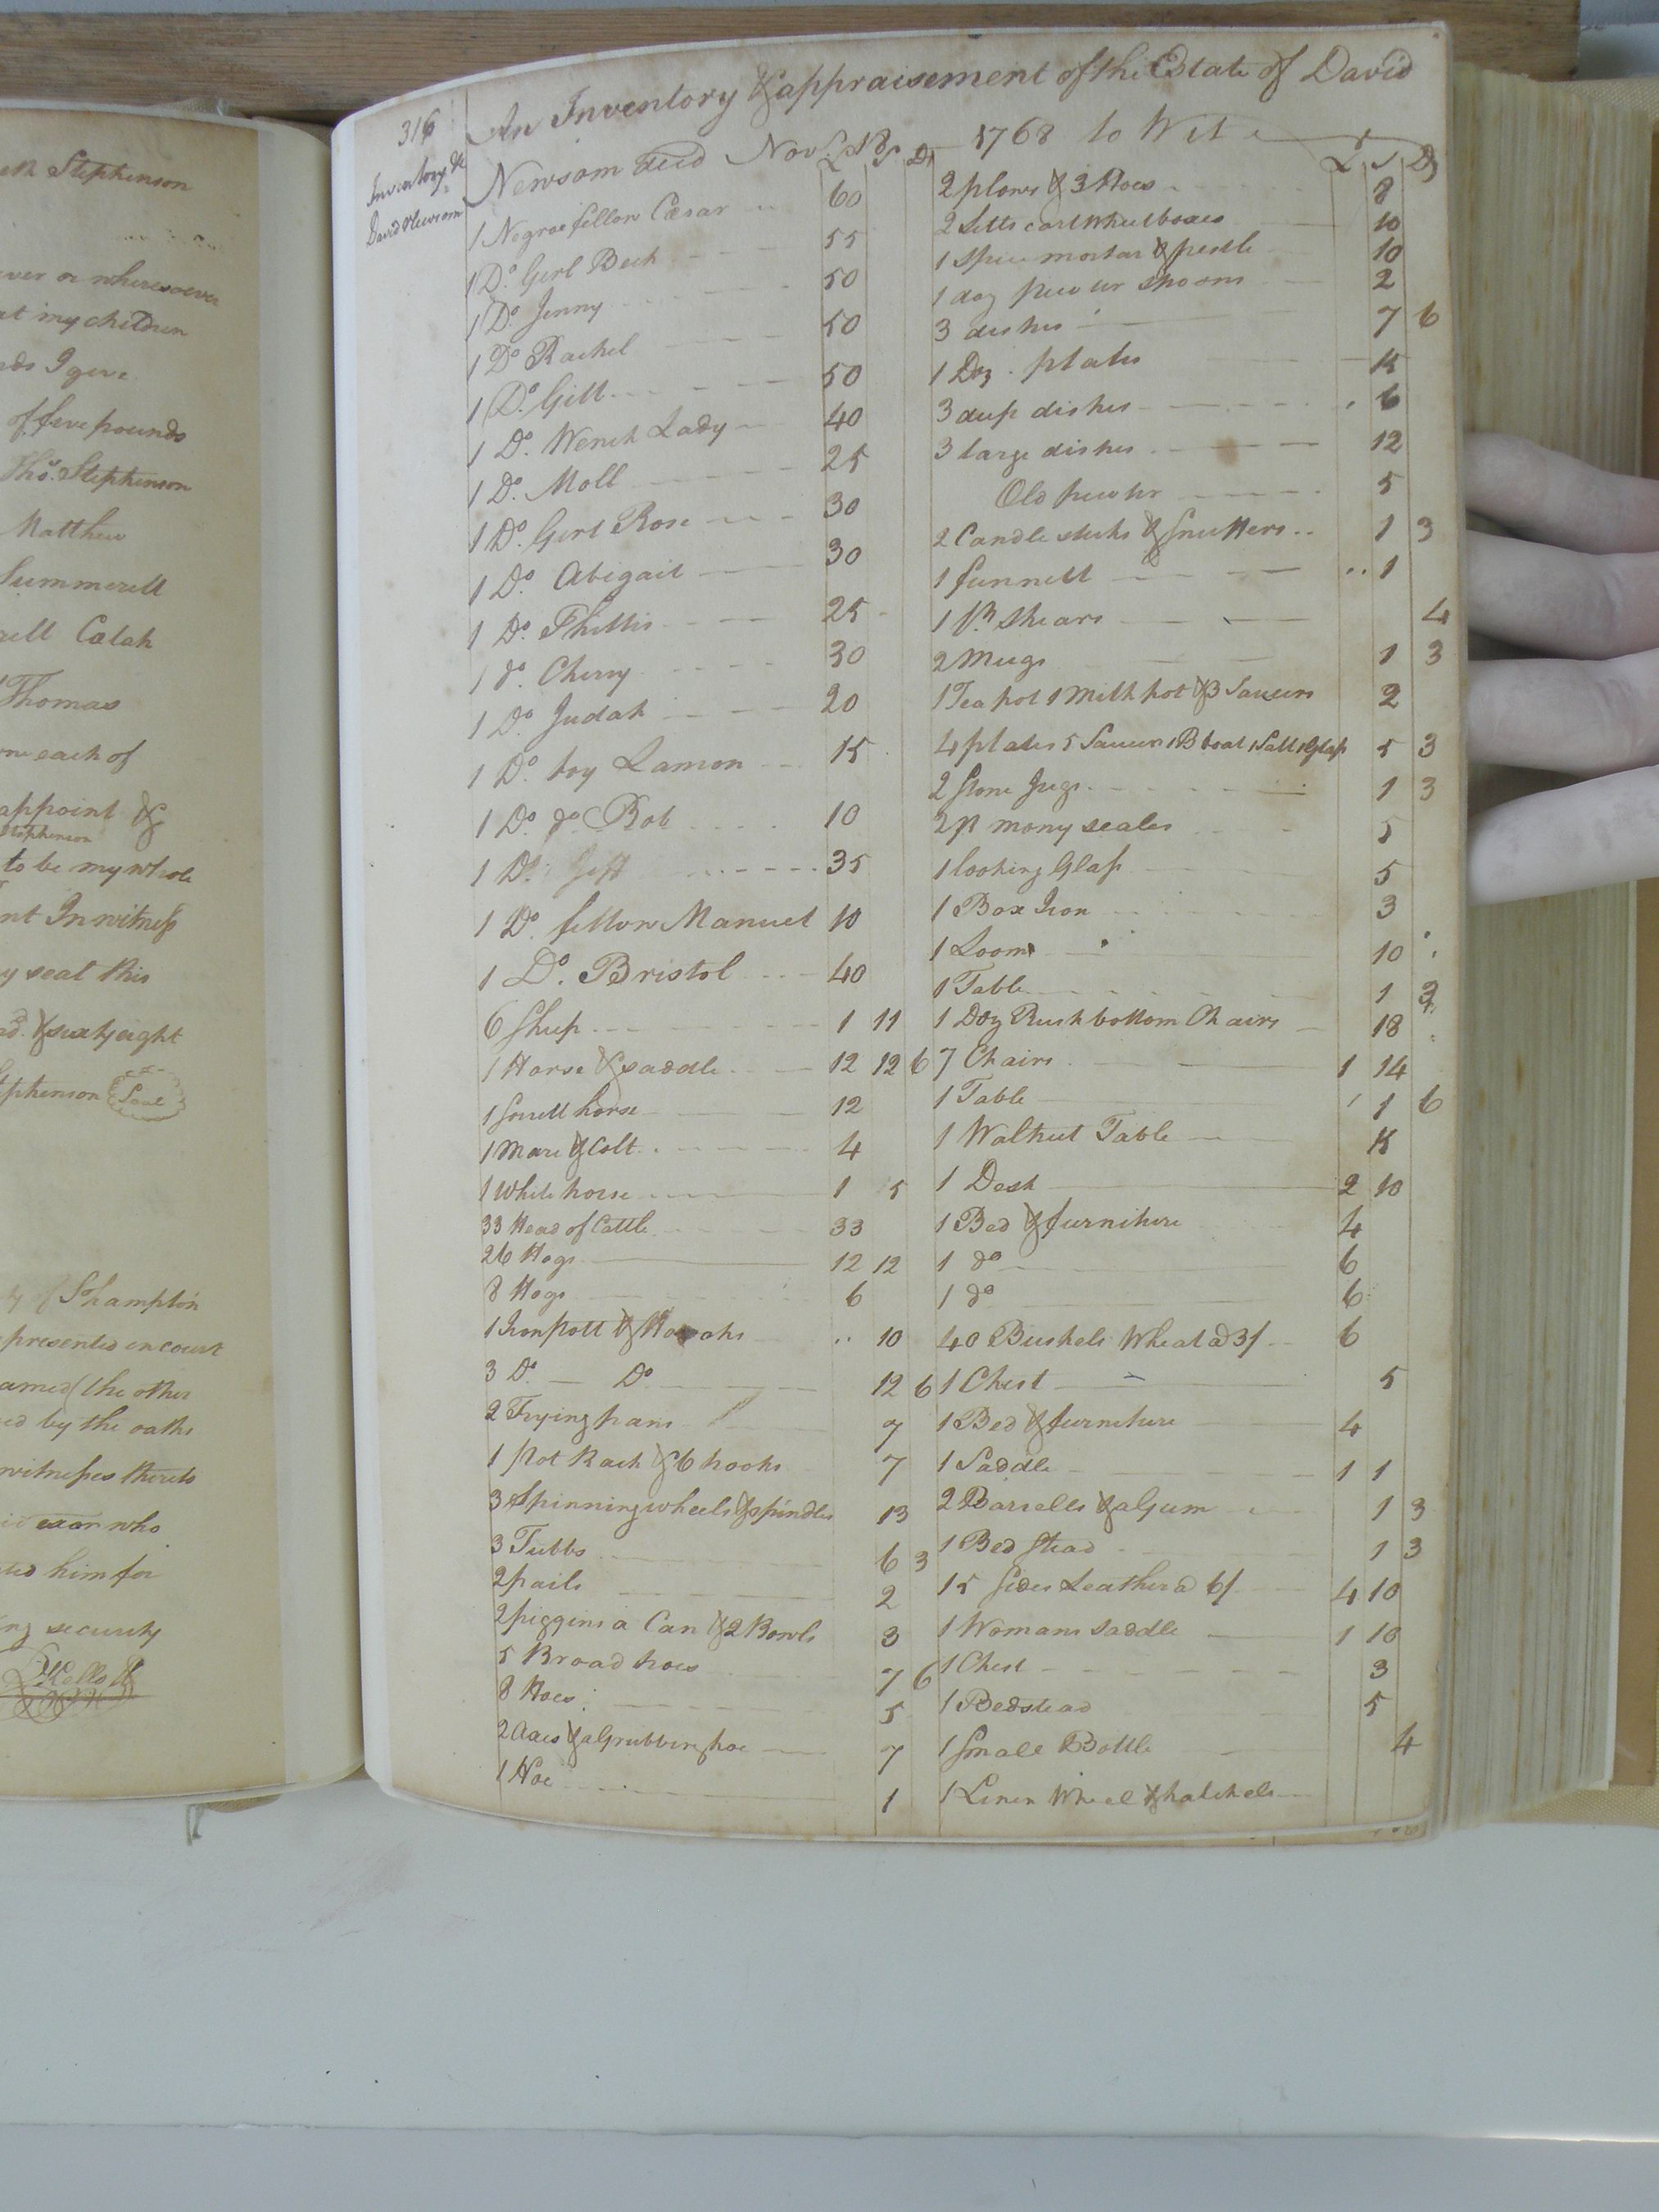 eth Stephenson
ever or wheresoever
at my children
I give
of five pounds
Thos. Stephenson
Matthew
Summerell
rell Calah
Thomas
one each of
appoint &
Stephenson
to be my whole
nt In witness
seal this
& sixty eight
Stephenson Seal
of Shampton
presented in court
named the other
ed by the oaths
witnesses thereto
exor who
him for
ing security
316
Inventory &c
David Newsom
An Inventory & appraisement of the Estate of David
Newsom decd Novr. 18 1768 to Wit
£ S D
1 Negroe fellow Cæsar 60
1 Do. Girl Beck 55
1 Do. Jenny 50
1 Do Rachel 50
1 Do. Gill 50
1 Do. Wench Lady 40
1 Do. Moll 25
1 Do. Girl Rose 30
1 Do. Abigail 30
1 Do. Phillis 25
1 do. Cherry 30
1 Do. Judah 20
1 Do. boy Lamon 15
1 Do. do. Bob 10
1 Do. Jeff 35
1 Do. fellow Manuel 10
1 Do. Bristol 40
6 Sheep 1 11
1 Horse & saddle 12 12 6
1 Sorrell horse 12
1 Mare & Colt 4
1 White horse 1 5
33 Head of Cattle 33
26 Hogs 12 12
8 Hogs 6
1 Iron Pott & Hooks 10
3 Do. Do. 12 6
2 Frying pans 7
1 Pot Rack & 6 hooks 7
3 Spinning wheels & spindles 13
3 Tubbs 6 3
2 pails 2
2 piggins a Can & 2 Bowls 3
5 Broad hoes 7 6
8 Hoes 5
2 axes & a Grubbing hoe 7
1 Hoe 1
£ S D
2 plows & 3 Hoes 8
2 Setts cart Wheel boxes 10
1 Spice mortar & pestle 10
1 doz pewter spoons 2
3 dishes 7 6
1 Doz. plates 15
3 deep dishes 6
3 large dishes 12
Old pewter 5
2 Candlesticks & Snuffers 1 3
1 funnell 1
1 pr. shears 4
2 Mugs 1 3
1 Tea pot 1 Milk pot & 3 Saucers 2
4 plates 5 Saucers 1 B boat 1 Salt 1 Glass 5 3
2 Stone Jugs 1 3
2 pr mony scales 5
1 looking Glass 5
1 Box Iron 3
1 Loom 10
1 Table 1 3
1 Doz Rush bottom Chairs 18
7 Chairs 1 14
1 Table 1 6
1 Walnut Table 15
1 Desk 2 10
1 Bed & furniture 4
1 do 6
1 do 6
40 Bushels Wheat a 3/ 6
1 Chest 5
1 Bed & furniture 4
1 Saddle 1 1
2 Barrells & a Gum 1 3
1 Bed Stead 1 3
15 Sides Leather a 6/ 4 10
1 Womans saddle 1 10
1 Chest 3
1 Bedstead 5
1 Small Bottle 4
1 Linen Wheel & hatchels